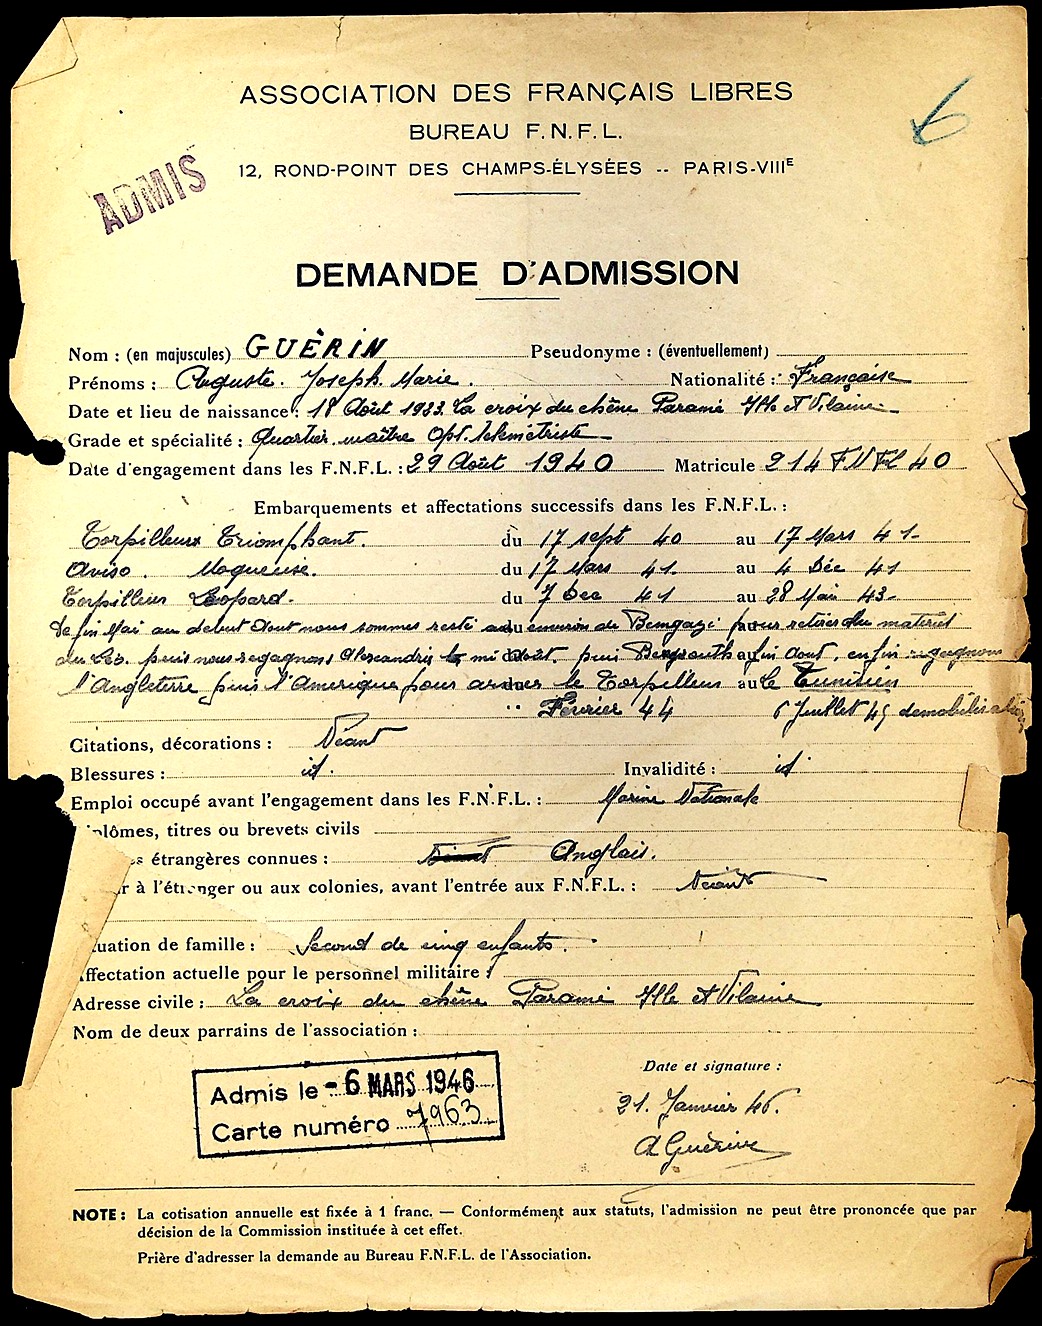 6
ASSOCIATION DES FRANÇAIS LIBRES
BUREAU F.N.F.L.
12, ROND-POINT DES CHAMPS-ÉLYSÉES -- PARIS-VIIIE
ADMIS
DEMANDE D'ADMISSION
Nom : (en majuscules) GUÈRIN Pseudonyme : (éventuellement)
Prénoms : Auguste. Joseph. Marie. Nationalité : Française
Date et lieu de naissance : 18 Août 1923. La croix du chêne Paramé Ille et Vilaine
Grade et spécialité : Quartier. maître Opt. télémètriste
Date d'engagement dans les F.N.F.L. : 29 Août 1940 Matricule 214 FNFL 40
Embarquements et affectations successifs dans les F.N.F.L. :
Torpilleur Triomphant. du 17 sept 40 au 17 Mars 41
Aviso. Moqueuse. du 17 Mars 41 au 4 Déc 41
Torpilleur Léopard. du 7 Dec 41 au 28 Mai 43
De fin Mai au debut Aout nous sommes resté environ de Bengazi pour retirer du matériel
du Léo. puis nous regagnons Alexandrie mi Août. puis Beyrouth fin Aout, enfin regagnons
l'Angleterre, puis l'Amerique pour armer le Torpilleur le Tunisien
" Février 44 6 Juillet 45 demobilisation
Citations, décorations : Néant
Blessures : id. Invalidité : id
Emploi occupé avant l'engagement dans les F.N.F.L. : Marine Nationale
plômes, titres ou brevets civils
s étrangères connues : Néant Anglais.
r à l'étranger ou aux colonies, avant l'entrée aux F.N.F.L. : Néant
uation de famille : Second de cinq enfants.
ffectation actuelle pour le personnel militaire :
Adresse civile : La croix du chêne Paramé Ille et Vilaine
Nom de deux parrains de l'association :
Date et signature :
Admis le - 6 MARS 1946
Carte numéro 7963
21. Janvier 46.
A Guérin
NOTE : La cotisation annuelle est fixée à 1 franc. — Conformément aux statuts, l'admission ne peut être prononcée que par
décision de la Commission instituée à cet effet.
Prière d'adresser la demande au Bureau F.N.F.L. de l'Association.